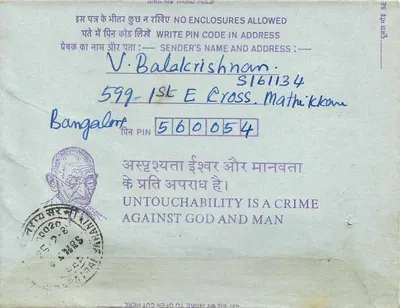 इस पत्र के भीतर कुछ न रखिये NO ENCLOSURES ALLOWED
पते में पिन कोड लिखें WRITE PIN CODE IN ADDRESS
प्रेषक का नाम और पता :— SENDER'S NAME AND ADDRESS :—
V. Balakrishnan.
S161134
599-1st E Cross, Mathikkare
Bangalore पिन PIN 560054
अस्पृश्यता ईश्वर और मानवता
के प्रति अपराध है।
UNTOUCHABILITY IS A CRIME
AGAINST GOD AND MAN